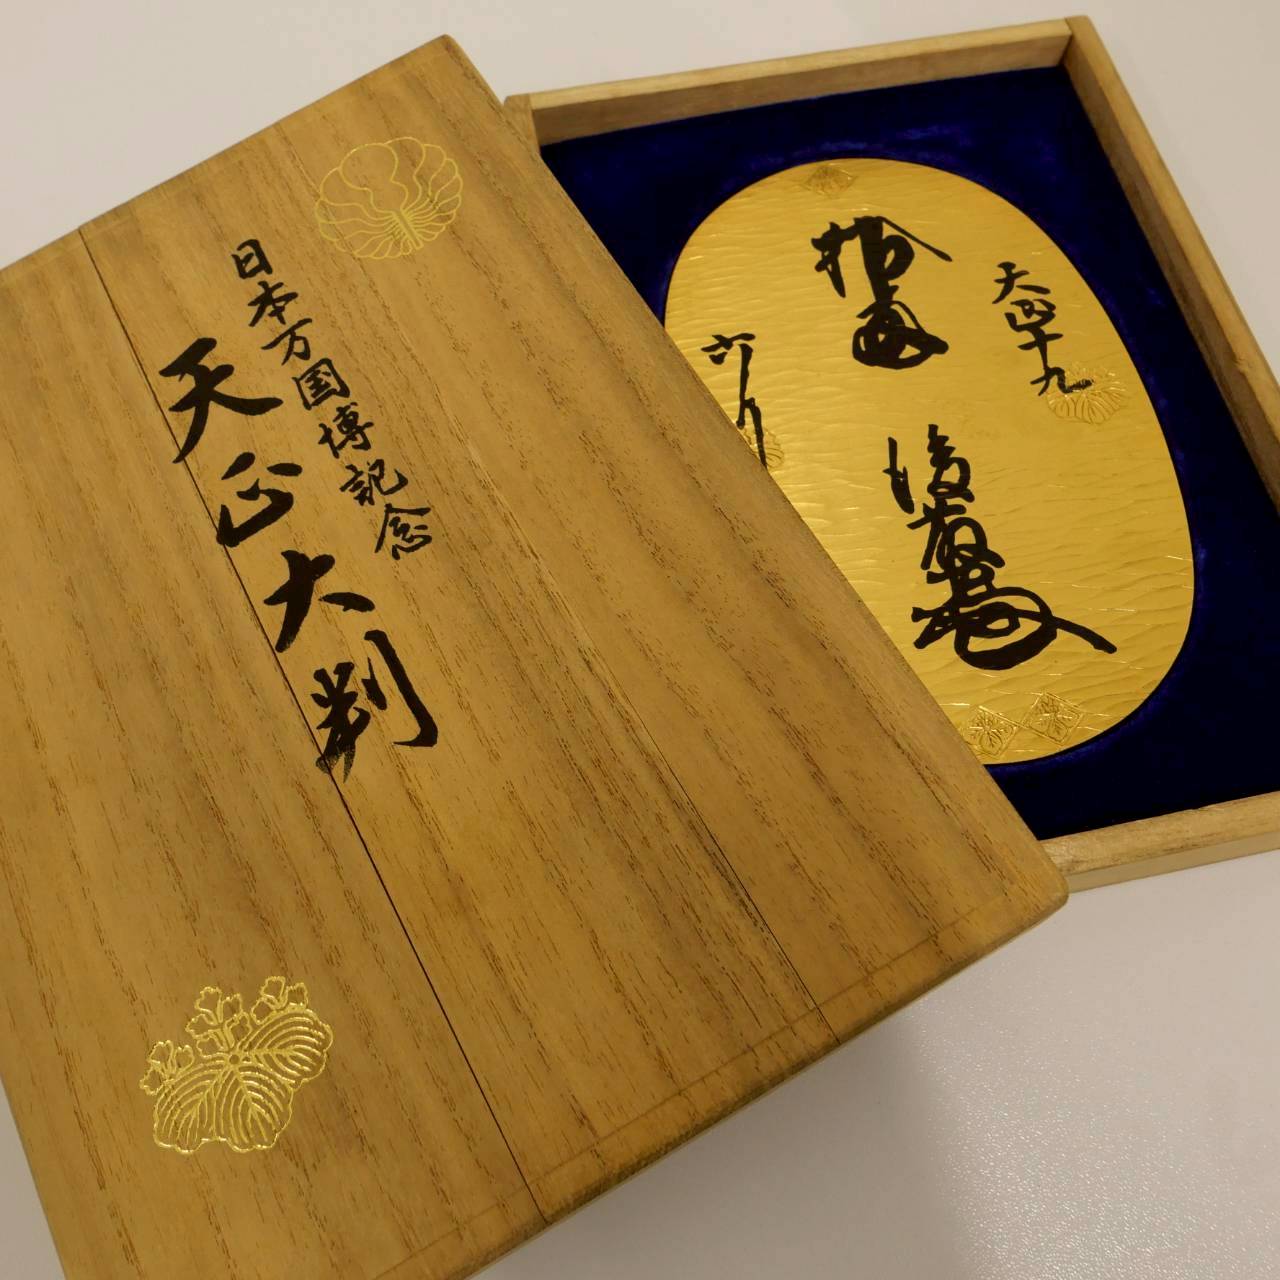 日本万国博記念
天正大判
天正十九
拾両
後藤
六月